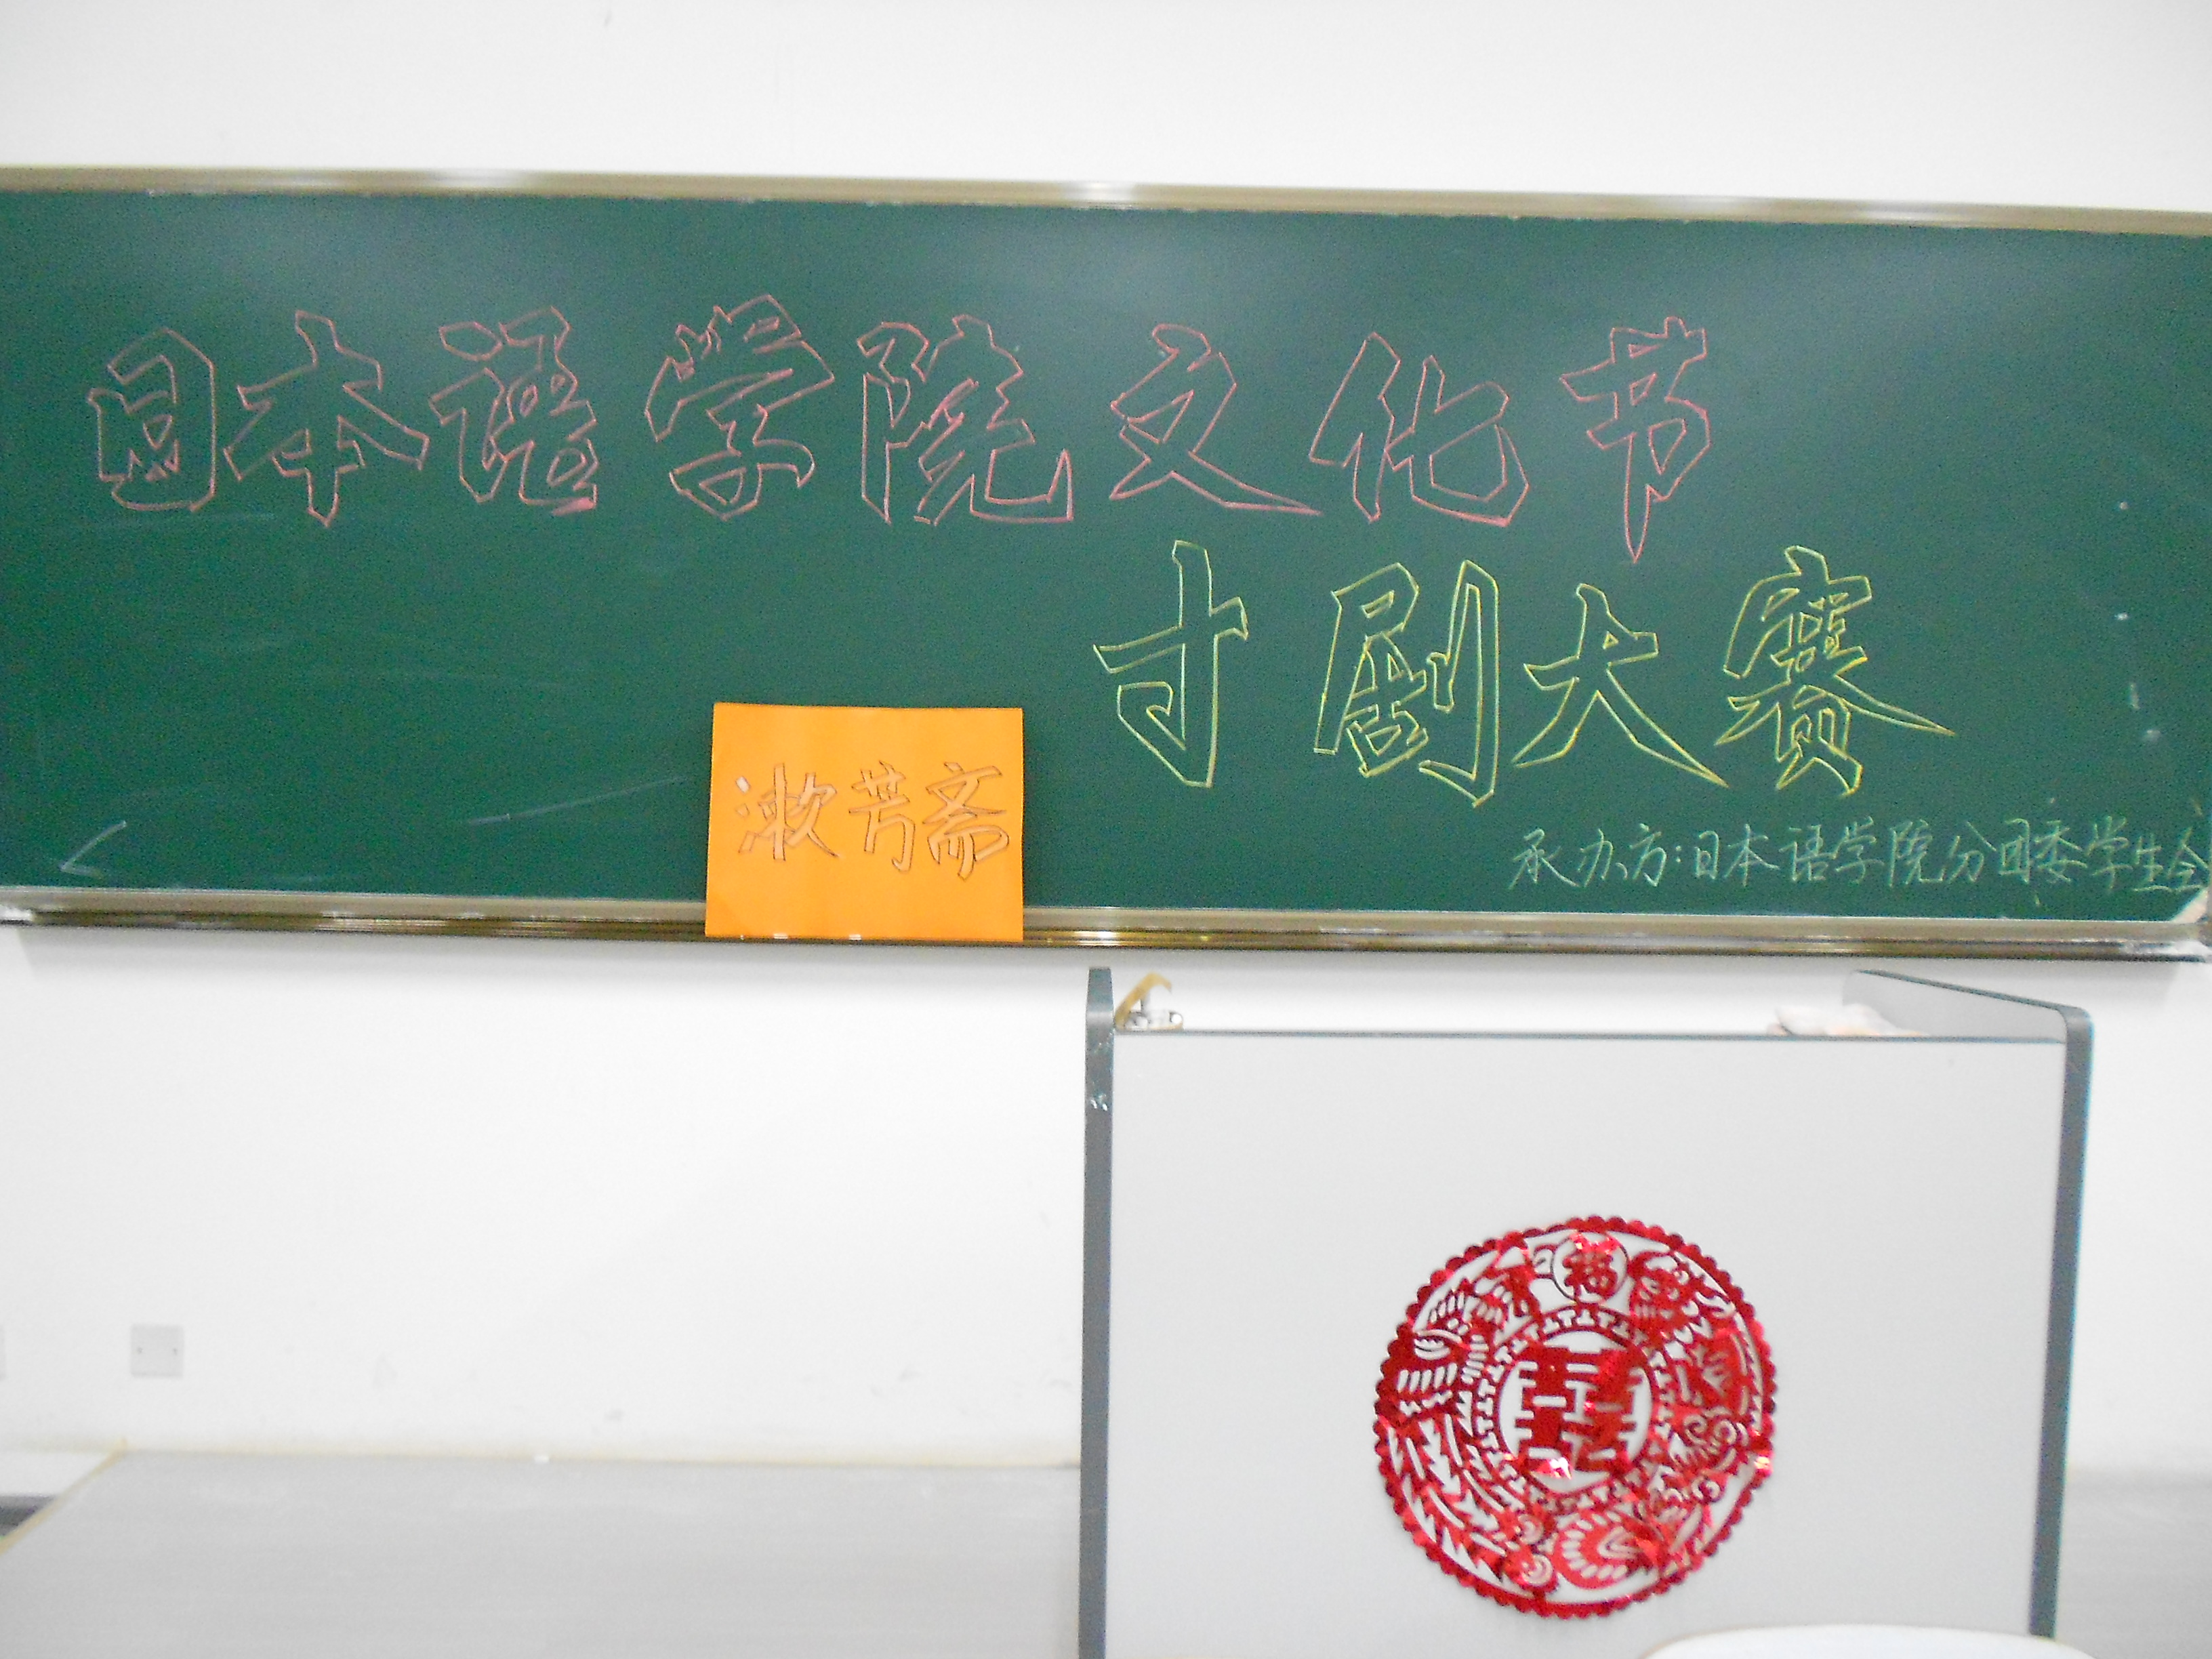 日本语学院文化节
寸剧大赛
漱芳斋
承办方:日本语学院分团委学生会
福
囍